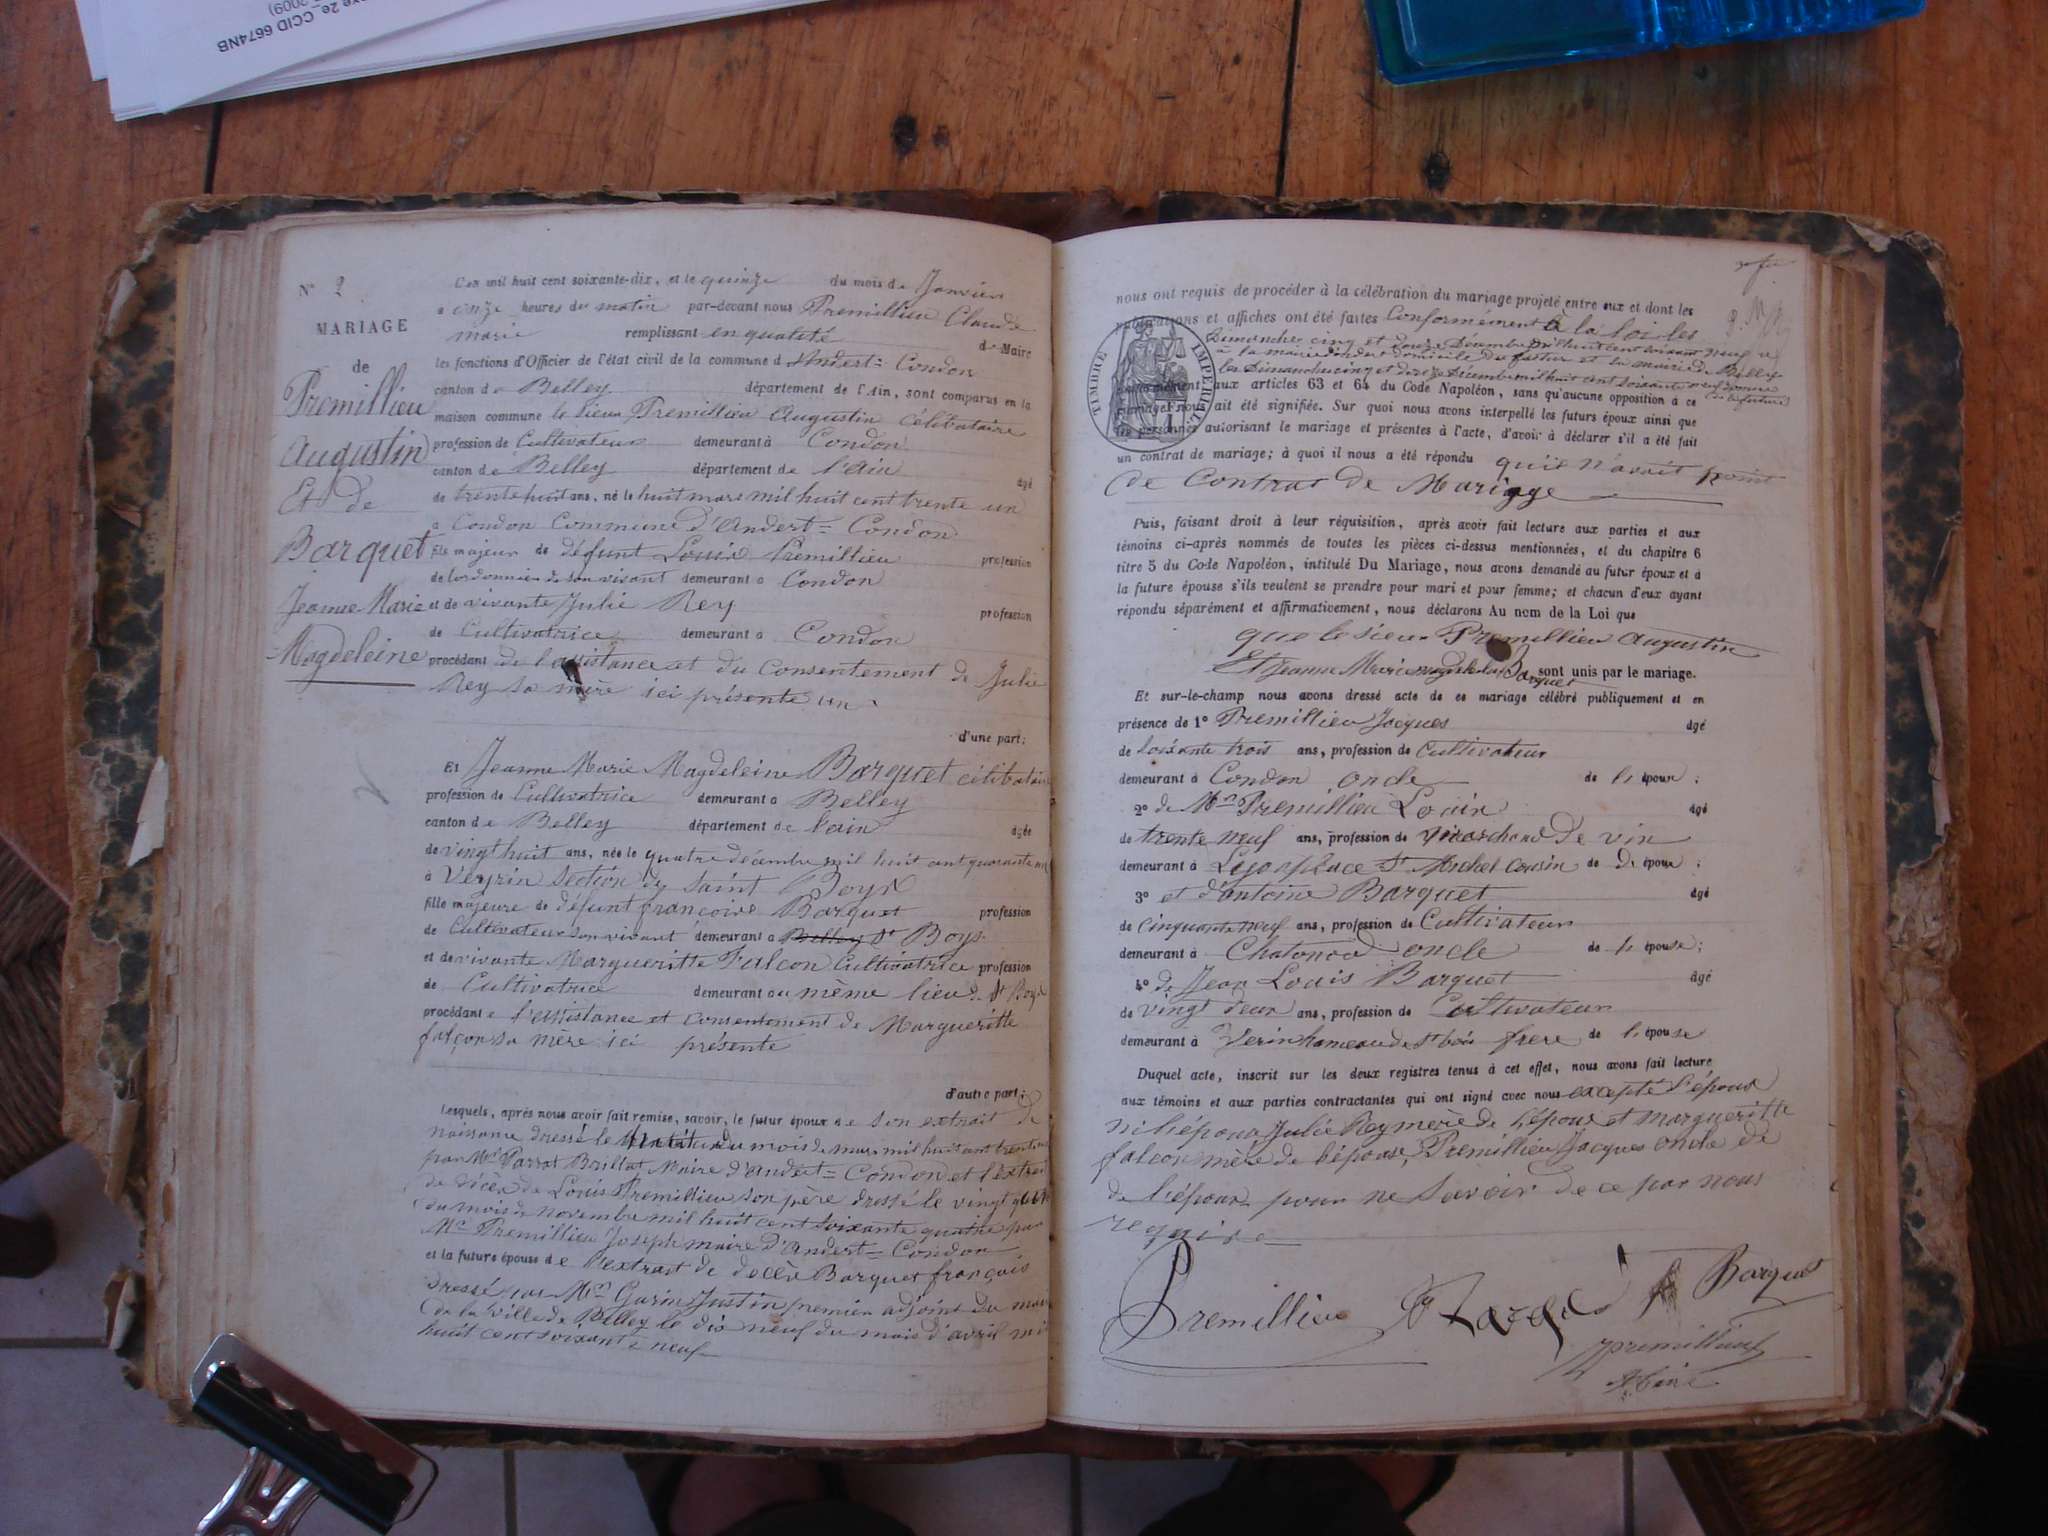 xe 2e_CCID 6674NB
2009)
N° 2
MARIAGE
de
Premillieu
Augustin
Et de
Barquet
Jeanne Marie
Magdeleine
L'an mil huit cent soixante-dix, et le quinze du mois de Janvier
à onze heures du matin par-devant nous Premillieu Claude
marie remplissant en qualité de Maire
les fonctions d'Officier de l'état civil de la commune d'Andert-Condon
canton de Belley département de l'Ain, sont comparus en la
maison commune le sieur Premillieu Augustin célibataire
profession de Cultivateur demeurant à Condon
canton de Belley département de l'ain âgé
de trente huit ans, né le huit mars mil huit cent trente un
à Condon Commune d'Andert-Condon
fils majeur de défunt Louis Premillieu profession
de Cordonnier de son vivant demeurant à Condon
et de vivante Julie Rey profession
de Cultivatrice demeurant à Condon
procédant de l'assistance et du Consentement de Julie
Rey sa mère ici présente
d'une part;
Et Jeanne Marie Magdeleine Barquet célibataire
profession de Cultivatrice demeurant à Belley
canton de Belley département de l'ain âgée
de vingt huit ans, née le quatre décembre mil huit cent quarante un
à Veyrin section de Saint Boys
fille majeure de défunt françois Barquet profession
de Cultivateur son vivant demeurant à Belley St Boys
et de vivante Margueritte Falcon Cultivatrice profession
de Cultivatrice demeurant au même lieu de St Boys
procédant de l'assistance et consentement de Margueritte
falçon sa mère ici présente
d'autre part;
Lesquels, après nous avoir fait remise, savoir, le futur époux de son extrait de
naissance dressé le du mois de mars mil huit cent trente un
par Mr Parrat Brillat Maire d'andert-Condon et l'extrait
de décès de Louis Premillieu son père dressé le vingt
du mois de novembre mil huit cent soixante quatre par
Mr Premillieu Joseph maire d'Andert-Condon
et la future épouse de l'extrait de décès Barquet françois
dressé par Mr Garin Justin premier adjoint du maire
de la ville de Belley le dix neuf du mois d'avril mil
huit cent soixante neuf
nous ont requis de procéder à la célébration du mariage projeté entre eux et dont les
publications et affiches ont été faites Conformément à la loi les
Dimanches cinq et douze Décembre mil huit cent soixante neuf
à la mairie d'andert domicile du futur et la mairie de Belley
les Dimanches cinq et douze Décembre mil huit cent soixante neuf
conformément aux articles 63 et 64 du Code Napoléon, sans qu'aucune opposition à ce
mariage nous ait été signifiée. Sur quoi nous avons interpellé les futurs époux ainsi que
les personnes autorisant le mariage et présentes à l'acte, d'avoir à déclarer s'il a été fait
un contrat de mariage; à quoi il nous a été répondu qu'il n'avait point
de Contrat de Mariage
TIMBRE IMPERIAL
Puis, faisant droit à leur réquisition, après avoir fait lecture aux parties et aux
témoins ci-après nommés de toutes les pièces ci-dessus mentionnées, et du chapitre 6
titre 5 du Code Napoléon, intitulé Du Mariage, nous avons demandé au futur époux et à
la future épouse s'ils veulent se prendre pour mari et pour femme; et chacun d'eux ayant
répondu séparément et affirmativement, nous déclarons Au nom de la Loi que
que le sieur Premillieu Augustin
Et Jeanne Marie magdeleine Barquet sont unis par le mariage.
Et sur-le-champ nous avons dressé acte de ce mariage célébré publiquement et en
présence de 1° Premillieu Jacques âgé
de soixante trois ans, profession de Cultivateur
demeurant à Condon oncle de l'époux;
2° de Mr Premillieu Louis âgé
de trente neuf ans, profession de marchand de vin
demeurant à Lyon place St Michel Cousin de l'époux;
3° et d'antoine Barquet âgé
de cinquante neuf ans, profession de Cultivateur
demeurant à Chatonod oncle de l'épouse;
4° de Jean Louis Barquet âgé
de vingt deux ans, profession de Cultivateur
demeurant à Verin hameau de St bois frere de l'épouse
Duquel acte, inscrit sur les deux registres tenus à cet effet, nous avons fait lecture
aux témoins et aux parties contractantes qui ont signé avec nous excepté l'époux
ni l'épouse Julie Rey mère de l'époux et margueritte
falcon mère de l'épouse, Premillieu Jacques oncle de
de l'époux pour ne savoir de ce par nous
requis
Premillieu Barquet
premillieu
Maire